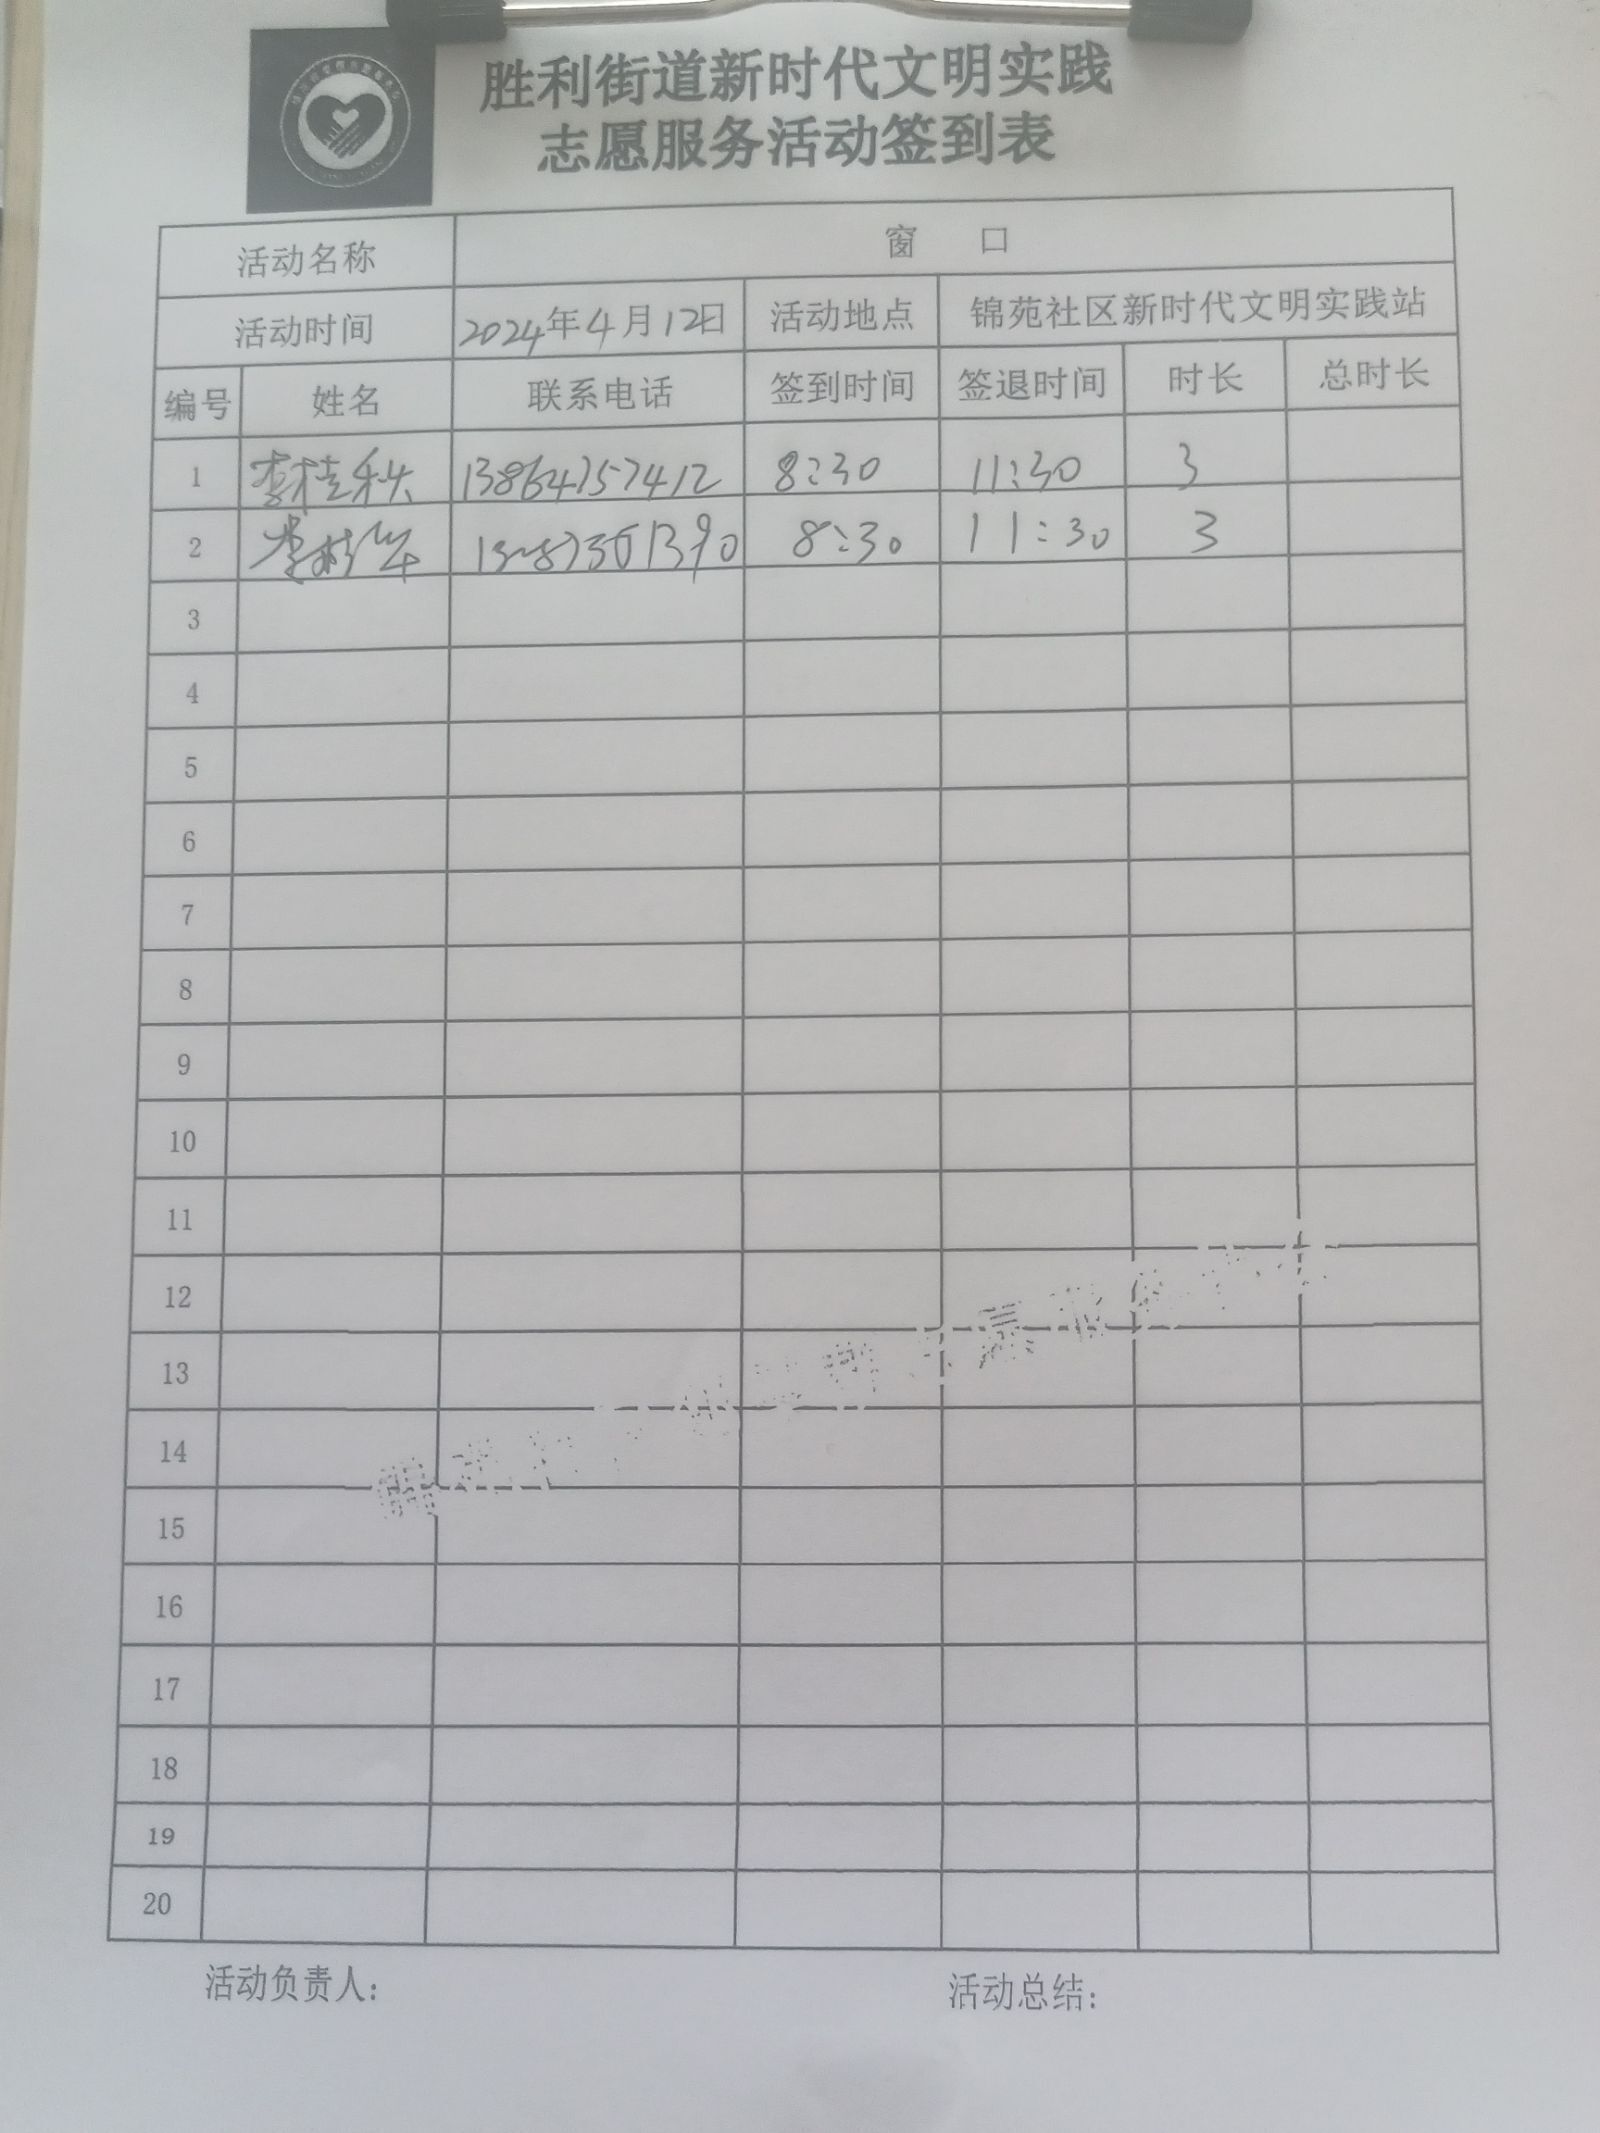 胜利街道新时代文明实践
志愿服务活动签到表
活动名称 窗 口
活动时间 2024年4月12日 活动地点 锦苑社区新时代文明实践站
编号 姓名 联系电话 签到时间 签退时间 时长 总时长
1 李桂秋 13864757412 8:30 11:30 3
2 8:30 11:30 3
3
4
5
6
7
8
9
10
11
12
13
14
15
16
17
18
19
20
活动负责人: 活动总结: